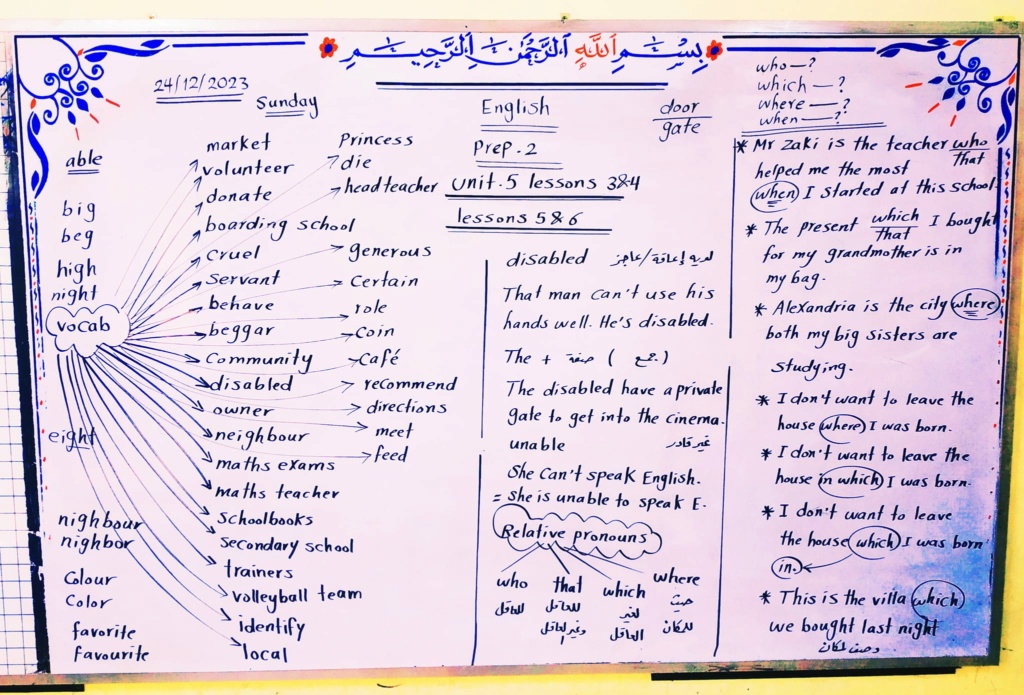 بِسْمِ اللَّهِ الرَّحْمَٰنِ الرَّحِيمِ
24/12/2023
Sunday
English
Prep.2
Unit.5 lessons 3&4
lessons 5&6
door
gate
able
big
beg
high
night
vocab
eight
nighbour
nighbor
Colour
Color
favorite
favourite
market
volunteer
donate
boarding school
cruel
servant
behave
beggar
Community
disabled
owner
neighbour
maths exams
maths teacher
Schoolbooks
Secondary school
trainers
volleyball team
identify
local
Princess
die
headteacher
generous
Certain
role
Coin
Café
recommend
directions
meet
feed
disabled لديه إعاقة/عاجز
That man can't use his
hands well. He's disabled.
The + صفة (جمع)
The disabled have a private
gate to get into the cinema.
unable غير قادر
She can't speak English.
= She is unable to speak E.
Relative pronouns
who that which where
للعاقل للعاقل لغير حيث
وغير العاقل العاقل للمكان
who —?
which —?
where —?
when —?
* Mr Zaki is the teacher who
that
helped me the most
when I started at this school.
* The present which I bought
that
for my grandmother is in
my bag.
* Alexandria is the city where
both my big sisters are
studying.
* I don't want to leave the
house where I was born.
* I don't want to leave the
house in which I was born.
* I don't want to leave
the house which I was born
in.
* This is the villa which
we bought last night
وصف المكان